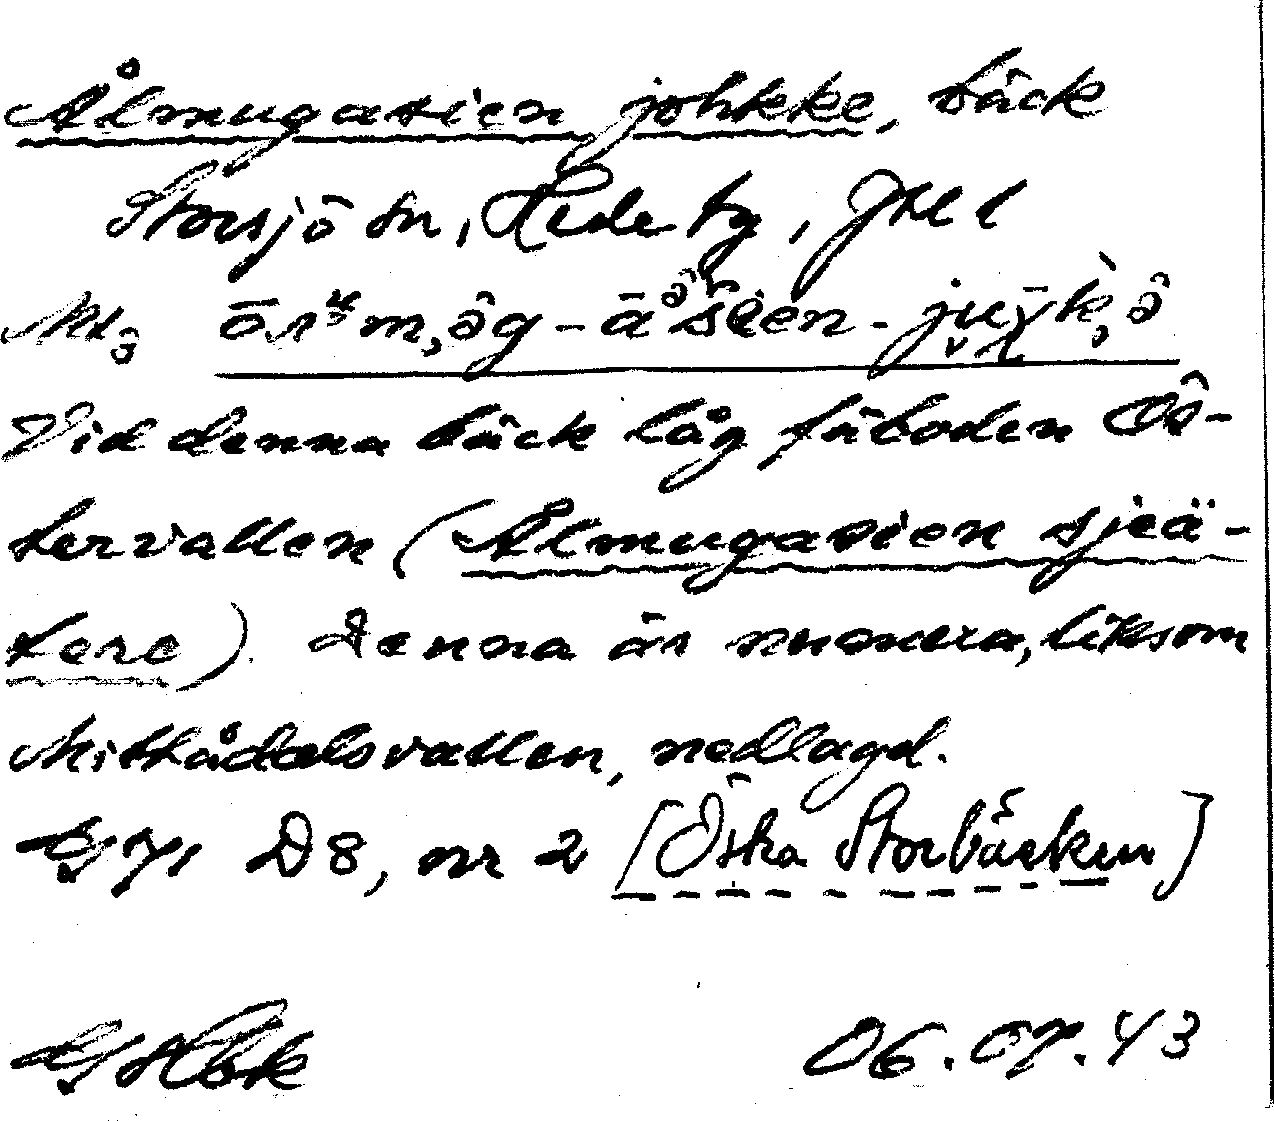 Ålmugasien johkke, bäck
Storsjö sn, Hede tg, Jtl l
Vid denna bäck låg fäboden Ös-
tervallen (Ålmugasien sjeä-
tere). Denna är numera, liksom
Mittådalsvallen, nedlagd.
D8, nr 2 [Östra Storbäcken]
06.07.43